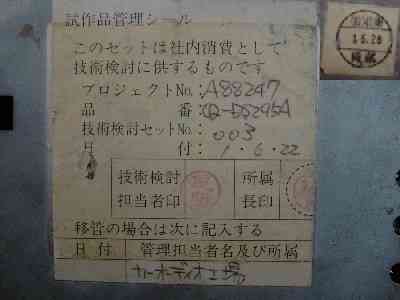 試作品管理シール
このセットは社内消費として
技術検討に供するものです
プロジェクトNo.: A88247
品 番: CQ-DS295A
技術検討セットNo.: 003
日 付: 1・6・22
技術検討
担当者印
所属
長印
移管の場合は次に記入する
日付 管理担当者名及び所属
カーオーディオ工場
1.6.28